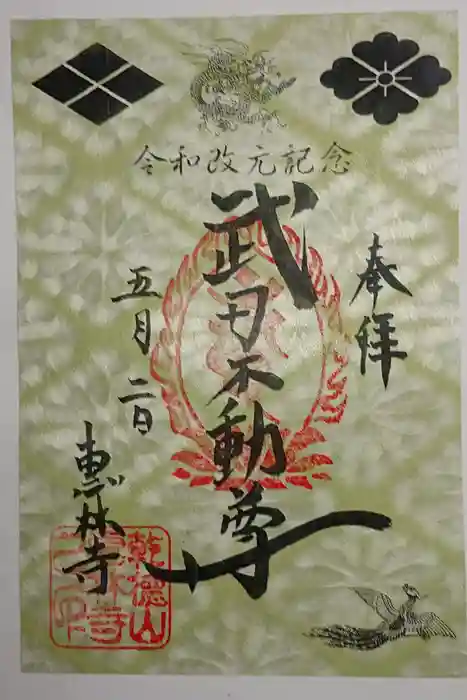 令和改元記念
奉拝
武田不動尊
五月二日
恵林寺
乾徳山